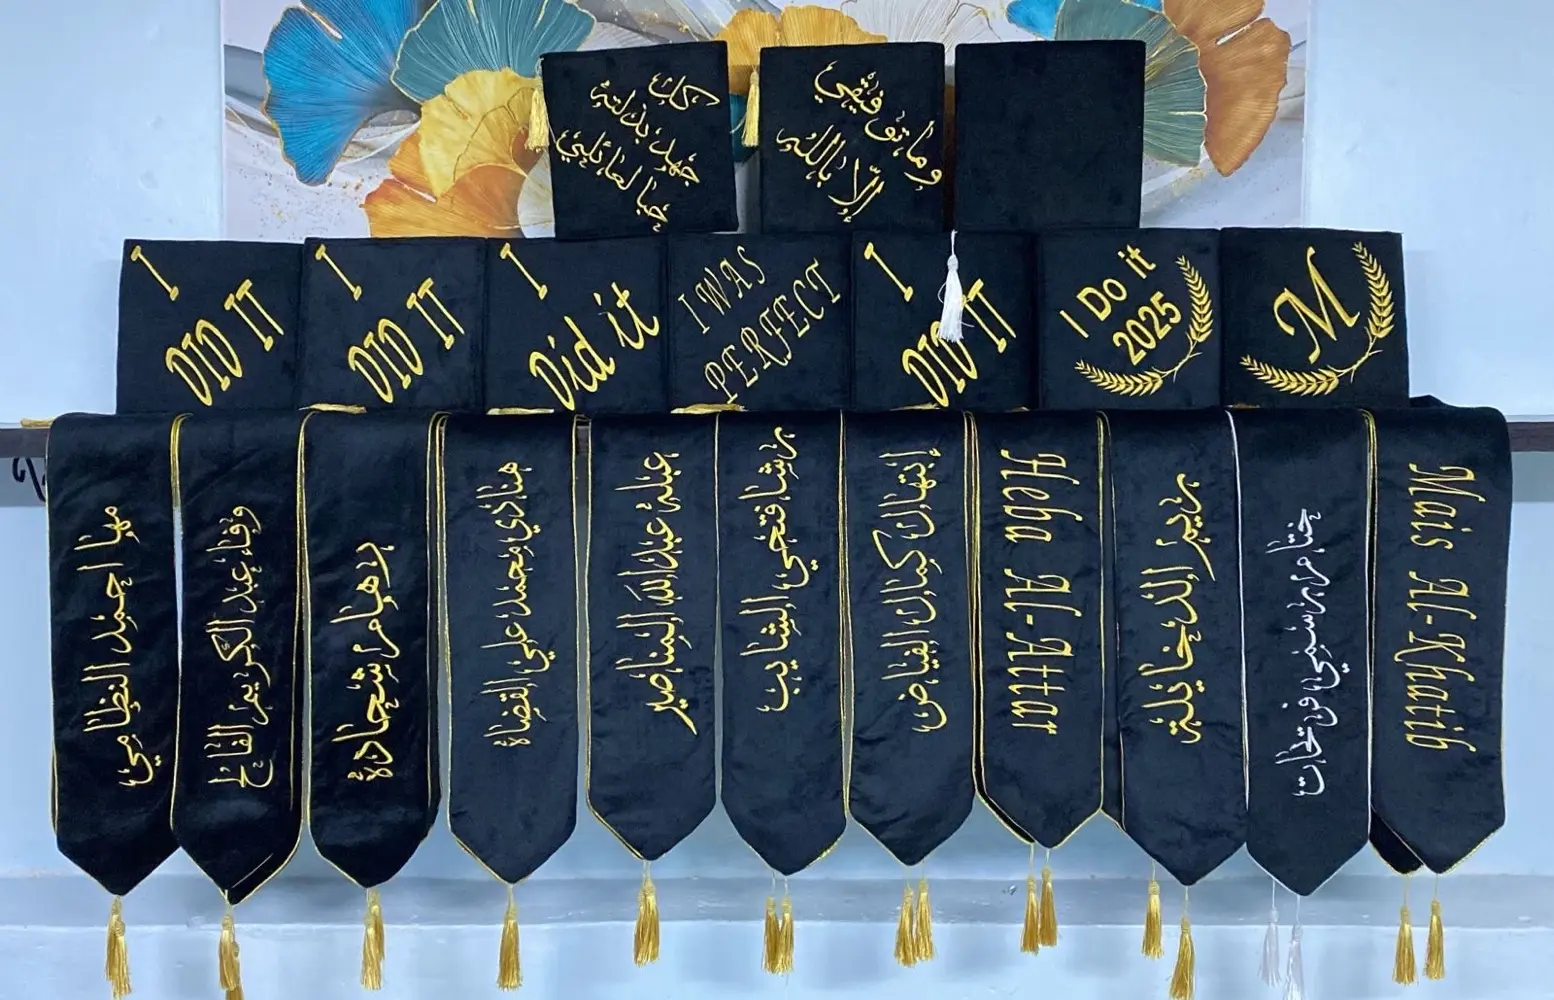 كل
جهد بذلته
حبا لعائلتي
وما توفيقي
إلّا باللّه
I
DID IT
I
DID IT
I
Did it
I WAS
PERFECT
I
DID IT
I Do it
2025
M
مها احمد النظامي
وفاء عبد الكريم الفالح
رهام شحادة
هنادي محمد علي القضاة
عبله عبدالله المناصير
رشا فتحي الشايب
إبتهال كمال الفياض
Heba Al-Attar
ريم الدخايلة
ختام رسمي فريحات
Mais Al-Khatib